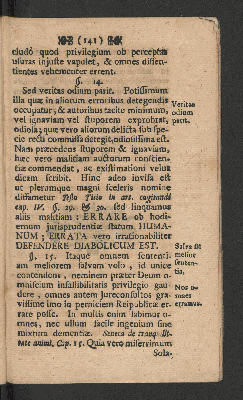 (141)
cludo quod privilegium ob perceptas
usuras injuste vapulet, & omnes dissen-
tientes vehementer errent.
§. 14.
Sed veritas odium parit. Potissimum
illa quæ in aliorum erroribus detegendis
occupatur, & autoribus tacite minimum,
vel ignaviam vel stuporem exprobrat,
odiosa; quæ vero aliorum delicta sub spe-
cie recti commissa detegit, odiosissima est.
Nam præcedens stuporem & ignaviam,
hæc vero malitiam auctorum conscien-
tiæ commendat, ac existimationi velut
dicam scribit. Hinc adeo invisa est
ut plerumque magni sceleris nomine
diffametur
cap. IV. §. 29. & 30. sed linquamus
aliis malitiam: ERRARE ob hodi-
ernum jurisprudentiæ statum HUMA-
NUM; ERRATA vero irrationabiliter
DEFENDERE DIABOLICUM EST.
§. 15. Itaque omnem sententi-
am meliorem salvam volo, id unice
contendens, neminem præter Deum o-
mniscium infallibilitatis privilegio gau-
dere, omnes autem Jureconsultos gra-
vissime imo in perniciem Reipublicæ er-
rare posse. In multis enim labimur o-
mnes, nec ullum facile ingenium sine
mixtura dementiæ. Seneca de tranquilli-
tate animi, Cap. 15. Quia vero miserrimum
Sola-
Veritas
odium
parit.
Salva sit
melior
senten-
tia.
Nos o-
mnes
erramus.